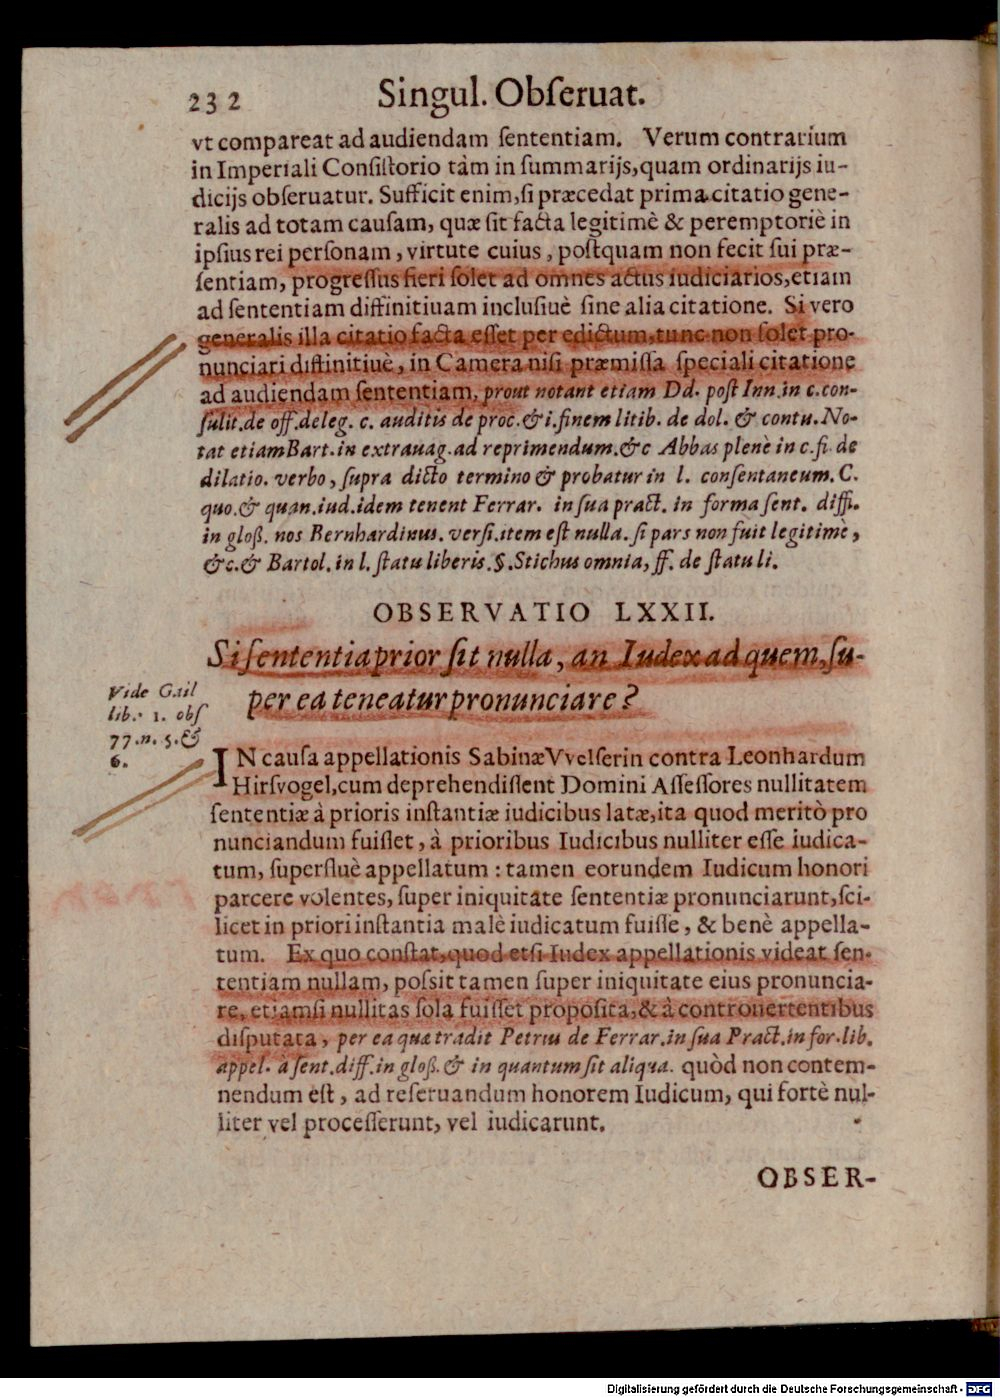 232 Singul. Obſeruat.
vt compareat ad audiendam ſententiam. Verum contrarium
in Imperiali Conſiſtorio tàm in ſummarijs, quam ordinarijs iu-
dicijs obſeruatur. Sufficit enim, ſi præcedat prima citatio gene-
ralis ad totam cauſam, quæ ſit facta legitimè & peremptoriè in
ipſius rei perſonam, virtute cuius, poſtquam non fecit ſui præ-
ſentiam, progreſſus fieri ſolet ad omnes actus iudiciarios, etiam
ad ſententiam diffinitiuam incluſiuè ſine alia citatione. Si vero
generalis illa citatio facta eſſet per edictum, tunc non ſolet pro-
nunciari diffinitiuè, in Camera niſi præmiſſa ſpeciali citatione
ad audiendam ſententiam, prout notant etiam Dd. poſt Inn. in c. con-
ſulit. de off. deleg. c. auditis de proc. & i. finem litib. de dol. & contu. No-
tat etiam Bart. in extrauag. ad reprimendum. &c Abbas plenè in c. fi. de
dilatio. verbo, ſupra dicto termino & probatur in l. conſentaneum. C.
quo. & quan. iud. idem tenent Ferrar. in ſua pract. in forma ſent. diffi.
in gloß. nos Bernhardinus. verſi. item eſt nulla. ſi pars non fuit legitimè,
&c. & Bartol. in l. ſtatu liberis. §. Stichus omnia, ff. de ſtatu li.
OBSERVATIO LXXII.
Si ſententia prior ſit nulla, an Iudex ad quem, ſu-
per ea teneatur pronunciare?
Vide Gail
lib. 1. obſ
77. n. 5. &
6.
IN cauſa appellationis Sabinæ Vvelſerin contra Leonhardum
Hirſvogel, cum deprehendiſſent Domini Aſſeſſores nullitatem
ſententiæ à prioris inſtantiæ iudicibus latæ, ita quod meritò pro
nunciandum fuiſſet, à prioribus Iudicibus nulliter eſſe iudica-
tum, ſuperfluè appellatum : tamen eorundem Iudicum honori
parcere volentes, ſuper iniquitate ſententiæ pronunciarunt, ſci-
licet in priori inſtantia malè iudicatum fuiſſe, & benè appella-
tum. Ex quo conſtat, quod etſi Iudex appellationis videat ſen-
tentiam nullam, poſsit tamen ſuper iniquitate eius pronuncia-
re, etiamſi nullitas ſola fuiſſet propoſita, & à controuertentibus
diſputata, per ea quæ tradit Petrus de Ferrar. in ſua Pract. in for. lib.
appel. a ſent. diff. in gloß. & in quantum ſit aliqua. quòd non contem-
nendum eſt, ad reſeruandum honorem Iudicum, qui fortè nul-
liter vel proceſſerunt, vel iudicarunt.
OBSER-
Digitalisierung gefördert durch die Deutsche Forschungsgemeinschaft - DFG